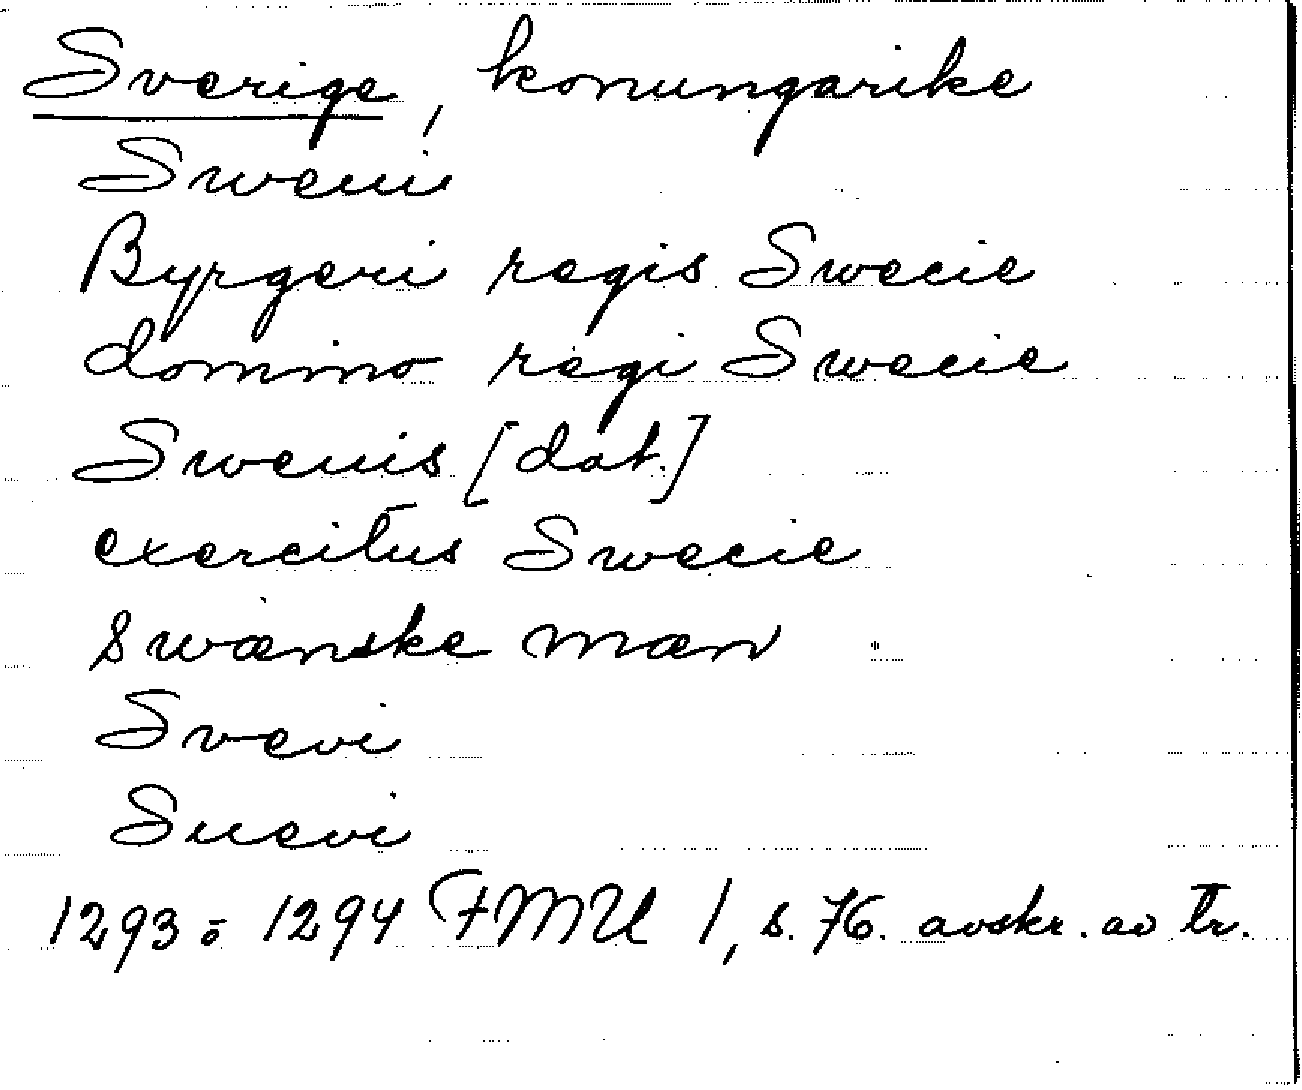 Sverige, konungarike
Sweui
Byrgeri regis Swecie
domino regi Swecie
Sweuis [dat.]
exercitus Swecie
swænske mæn
Svevi
Suevi
1293 ö 1294 FMU 1, s. 76. avskr. av tr.